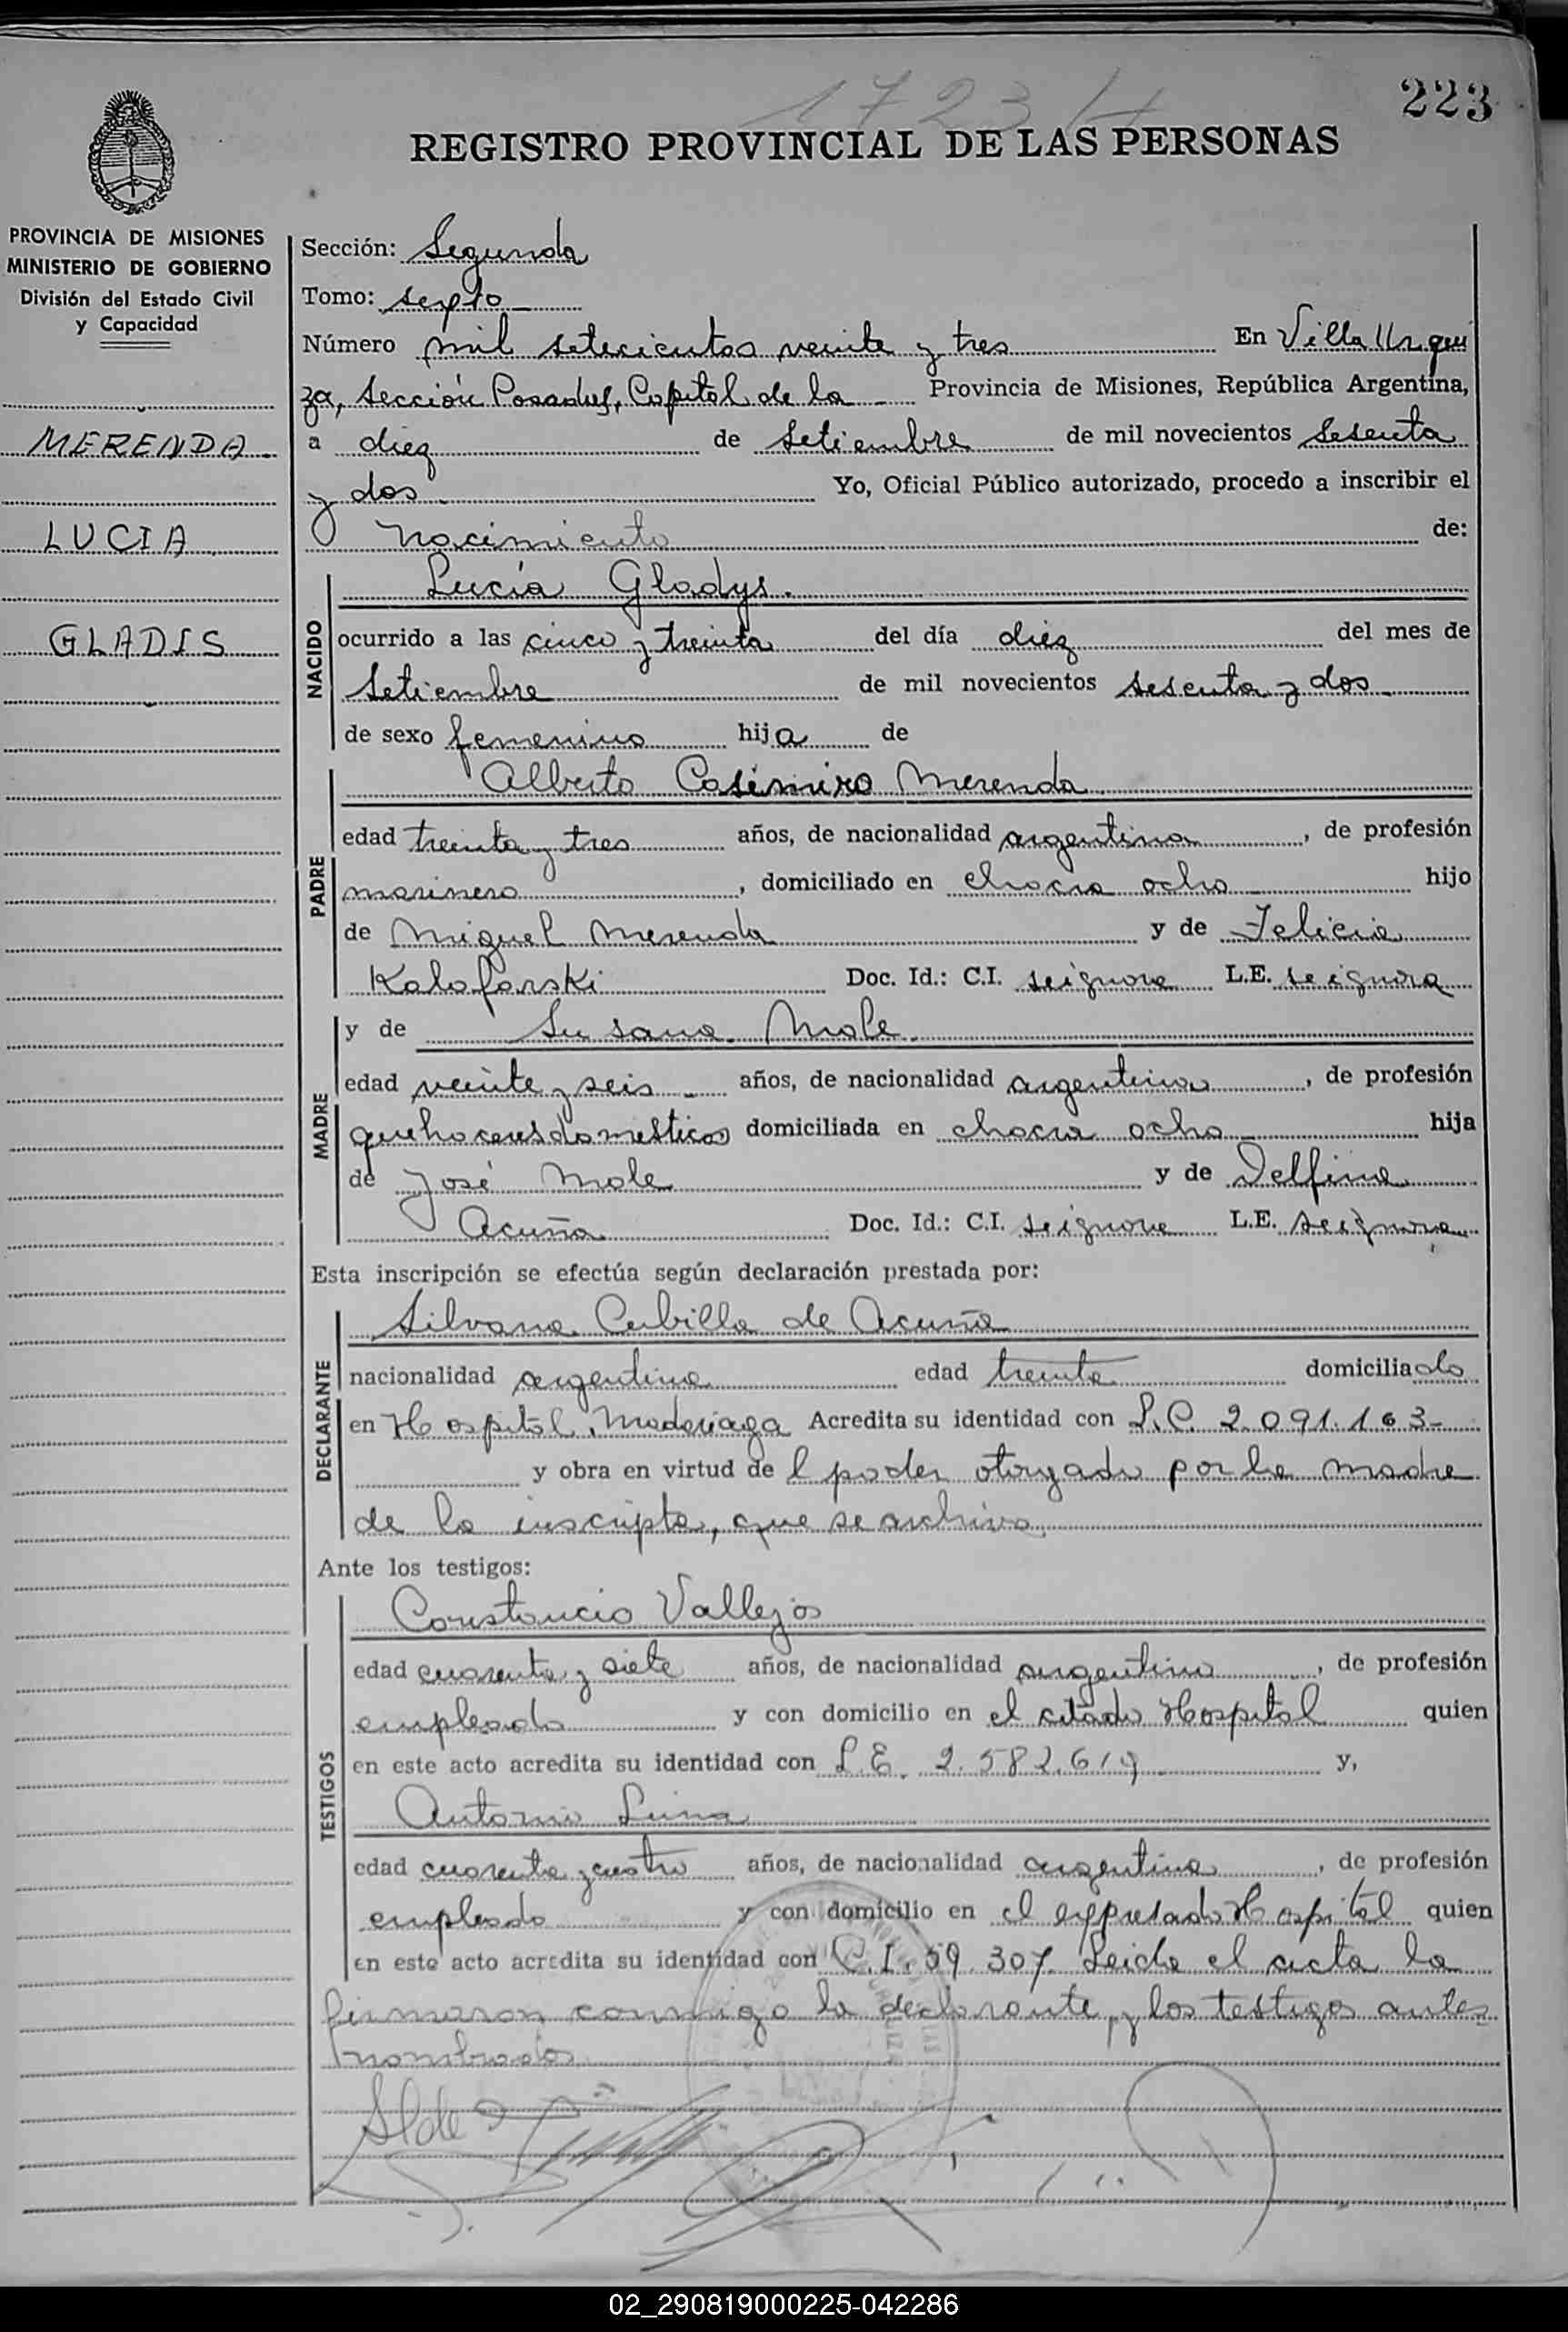 1723 H
223
REGISTRO PROVINCIAL DE LAS PERSONAS
PROVINCIA DE MISIONES
MINISTERIO DE GOBIERNO
División del Estado Civil
y Capacidad
MERENDA
LUCIA
GLADIS
Sección: Segunda
Tomo: sexto
Número mil setecientos veinte y tres En Villa Urqui
za, Sección Posadas, Capital de la Provincia de Misiones, República Argentina,
a diez de setiembre de mil novecientos sesenta
y dos Yo, Oficial Público autorizado, procedo a inscribir el
nacimiento de:
NACIDO
Lucía Gladys.
ocurrido a las cinco y treinta del día diez del mes de
setiembre de mil novecientos sesenta y dos
de sexo femenino hija de
PADRE
Alberto Casimiro Merenda
edad treinta y tres años, de nacionalidad argentina, de profesión
marinero, domiciliado en chacra ocho hijo
de Miguel Merenda y de Felicia
Kalafarski Doc. Id.: C.I. se ignora L.E. se ignora
MADRE
y de Susana Mole
edad veinte y seis años, de nacionalidad argentina, de profesión
quehaceres domésticos domiciliada en chacra ocho hija
de José Mole y de Delfina
Acuña Doc. Id.: C.I. se ignora L.E. se ignora
Esta inscripción se efectúa según declaración prestada por:
DECLARANTE
Silvana Cubilla de Acuña
nacionalidad argentina edad treinta domiciliado
en Hospital Madariaga Acredita su identidad con L.C. 2.091.163-
y obra en virtud de l poder otorgado por la madre
de la inscripta, que se archiva
Ante los testigos:
TESTIGOS
Constancio Vallejos
edad cuarenta y siete años, de nacionalidad argentina, de profesión
empleado y con domicilio en el citado Hospital quien
en este acto acredita su identidad con L.E. 2.582.619 y,
Antonio Luna
edad cuarenta y cuatro años, de nacionalidad argentina, de profesión
empleado y con domicilio en el expresado Hospital quien
en este acto acredita su identidad con C.I. 59.307. Leida el acta la
firmaron conmigo la declarante, y los testigos antes
nombrados
02_290819000225-042286